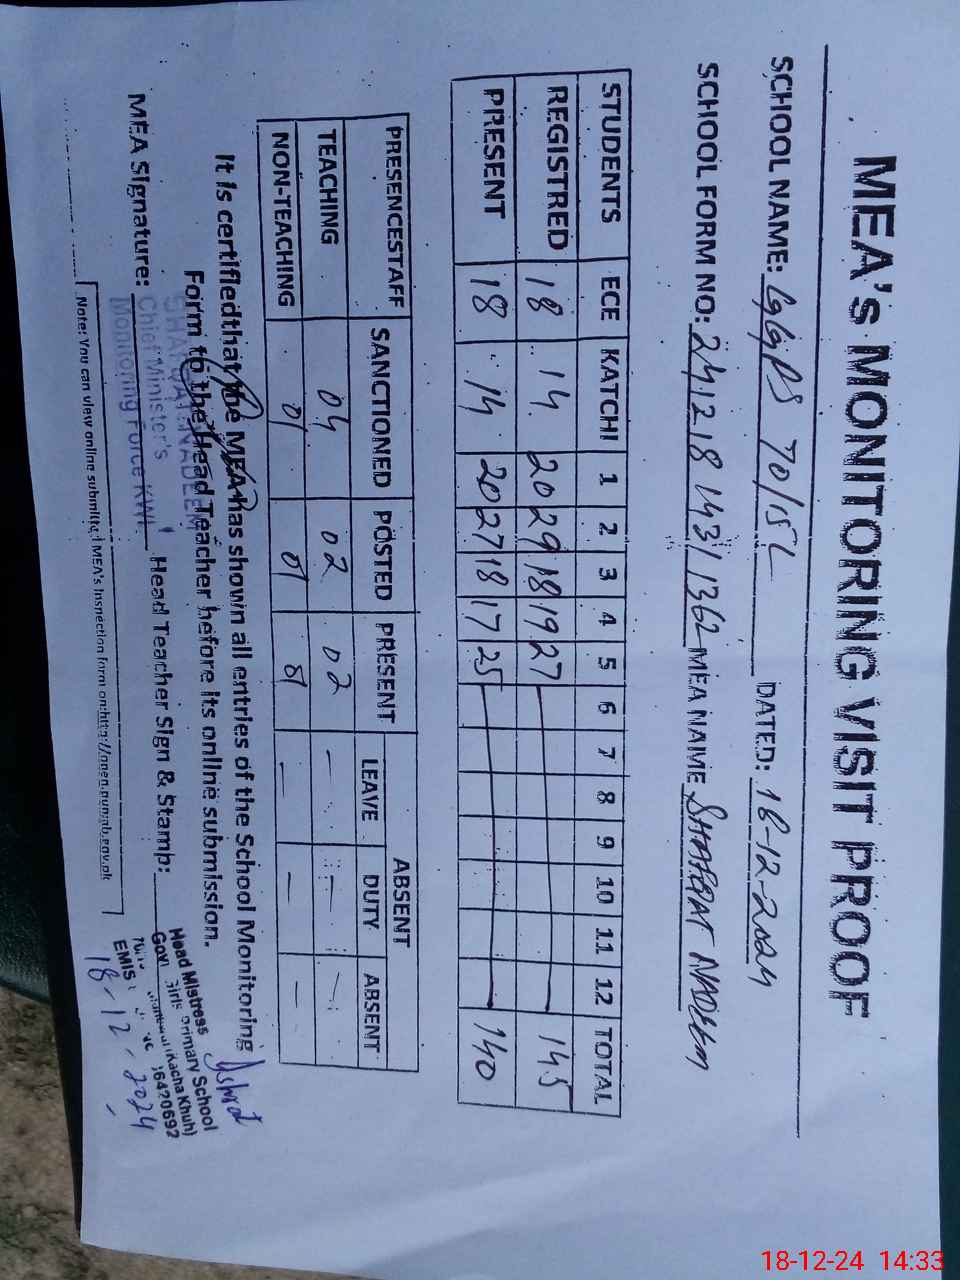 MEA's MONITORING VISIT PROOF
SCHOOL NAME: GGPS 70/15L DATED: 18-12-2024
SCHOOL FORM NO: 24121814311362 MEA NAME SHAFQAT NADEEM
STUDENTS ECE KATCHI 1 2 3 4 5 6 7 8 9 10 11 12 TOTAL
REGISTRED 18 14 20 29 18 19 27 145
PRESENT 18 14 20 27 18 17 25 140
PRESENCESTAFF SANCTIONED POSTED PRESENT ABSENT
LEAVE DUTY ABSENT
TEACHING 04 02 02 - - -
NON-TEACHING 01 01 01 - - -
It is certifiedthat the MEA has shown all entries of the School Monitoring
Form to the Head Teacher before its online submission.
SHAFQAT NADEEM
Chief Minister's
Monitoring Force KWL
MEA Signature: Head Teacher Sign & Stamp:
Head Mistress
Govt Girls Primary School
(Kacha Khuh)
EMIS
18-12-2024
Note: You can view online submitted MEA's Inspection form on:http://open.punjab.gov.pk
18-12-24 14:33